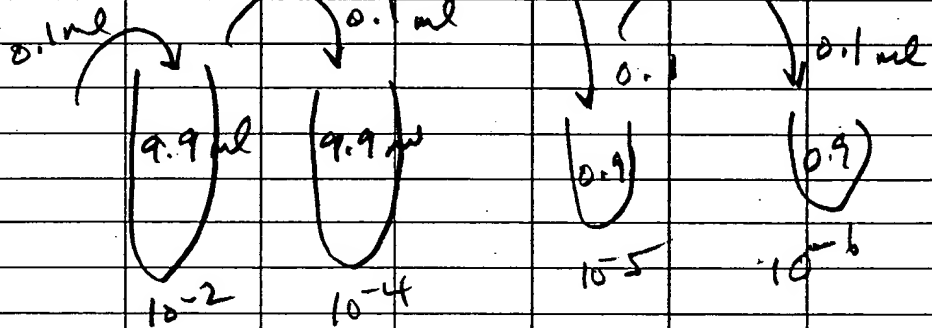 0.1 ml 0.1 ml 0.1 0.1 ml
9.9 ml 9.9 0.9 0.9
10-2 10-4 10-5 10-6